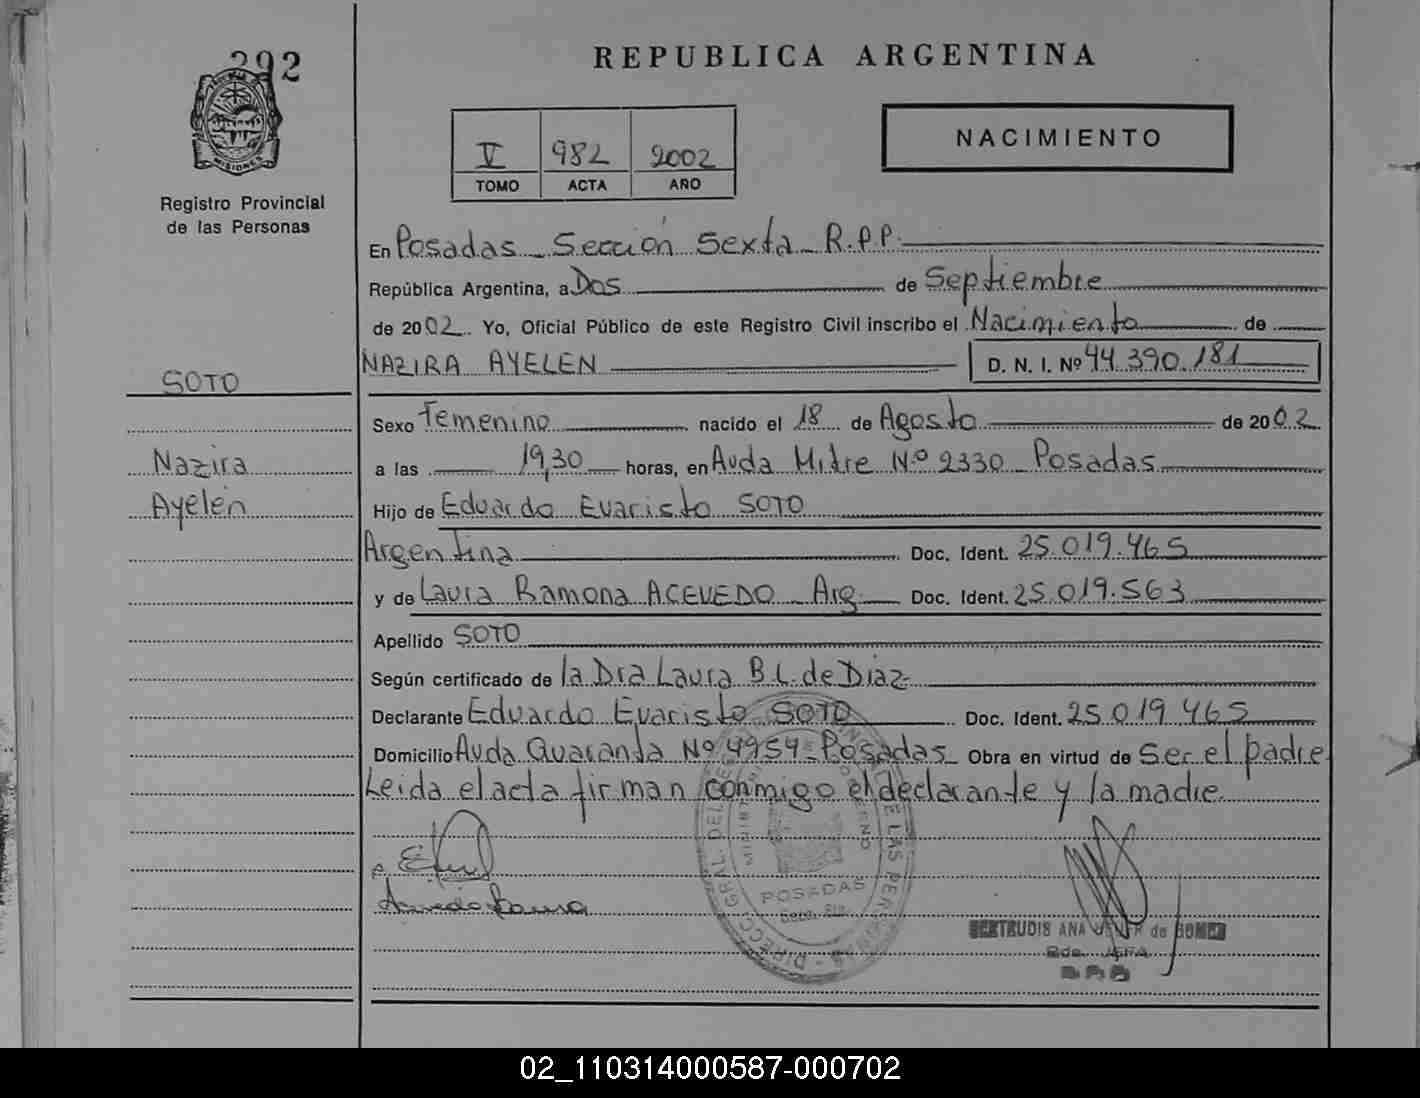 292
REPUBLICA ARGENTINA
NACIMIENTO
V 982 2002
TOMO ACTA AÑO
MISIONES
Registro Provincial
de las Personas
En Posadas - Sección Sexta - R.P.P.
República Argentina, a Dos de Septiembre
de 2002. Yo, Oficial Público de este Registro Civil inscribo el Nacimiento de
NAZIRA AYELEN D. N. I. Nº 44.390.181
SOTO
Sexo Femenino nacido el 18 de Agosto de 2002
Nazira
a las 19,30 horas, en Avda Mitre Nº 2330 - Posadas
Ayelén
Hijo de Eduardo Evaristo SOTO
Argentina Doc. Ident. 25.019.465
y de Laura Ramona ACEVEDO - Arg. Doc. Ident. 25.019.563
Apellido SOTO
Según certificado de la Dra Laura B L. de Diaz
Declarante Eduardo Evaristo SOTO Doc. Ident. 25 019 465
Domicilio Avda Quaranta Nº 4954 - Posadas Obra en virtud de Ser el padre
Leida el acta firman conmigo el declarante y la madre
Acevedo Laura
POSADAS
Secc. 6ta.
DE LAS PERSONAS
ANA de
JEFA
02_110314000587-000702